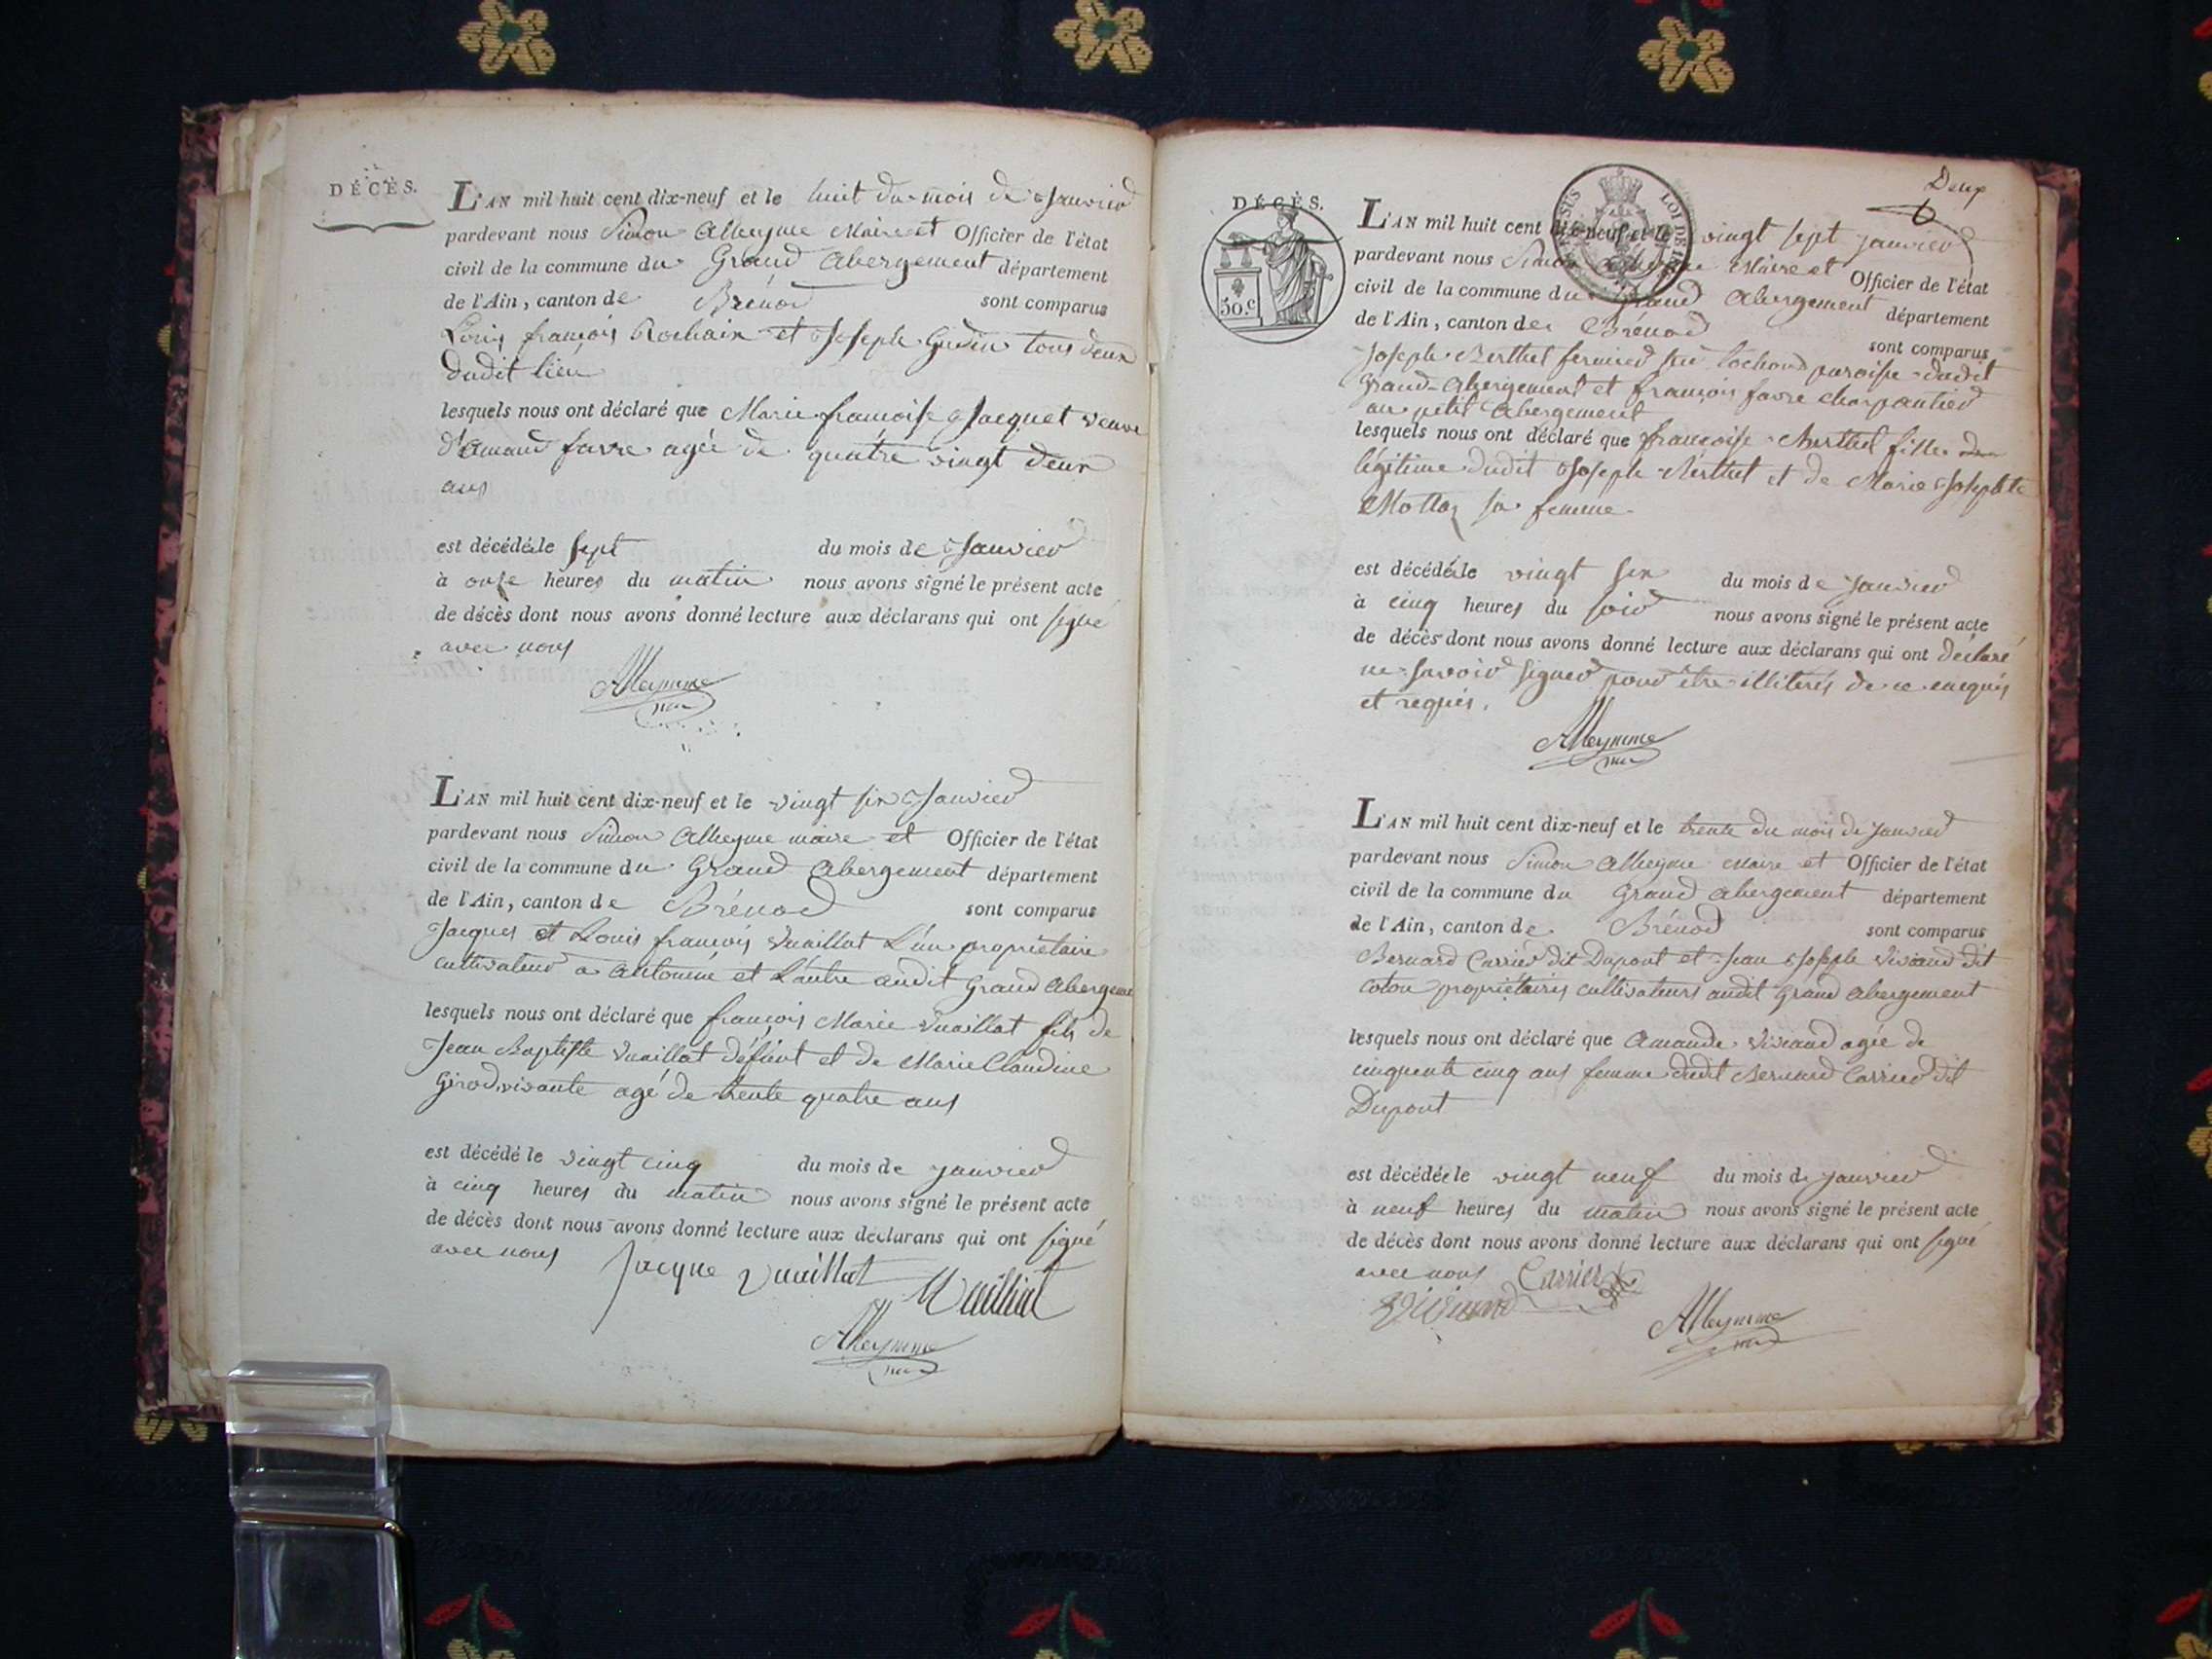 DÉCÈS.
L'AN mil huit cent dix-neuf et le huit du mois de Janvier
pardevant nous Simon Alleyme Maire et Officier de l'état
civil de la commune du Grand Abergement département
de l'Ain, canton de Brénod sont comparus
Louis françois Rochaix et Joseph Gudin tous deux
dudit lieu
lesquels nous ont déclaré que Marie françoise Jacquet veuve
d'Amand favre agée de quatre vingt deux
ans
est décédée le sept du mois de Janvier
à onze heures du matin nous avons signé le présent acte
de décès dont nous avons donné lecture aux déclarans qui ont signé
avec nous
Alleymme
L'AN mil huit cent dix-neuf et le vingt six Janvier
pardevant nous Simon Alleyme maire et Officier de l'état
civil de la commune du Grand Abergement département
de l'Ain, canton de Brénod sont comparus
Jacques et Louis françois Vuaillat L'un propriétaire
cultivateur a et L'autre audit Grand Abergement
lesquels nous ont déclaré que françois Marie Vuaillat fils de
Jean Baptiste Vuaillat défunt et de Marie Claudine
Girod vivante agé de trente quatre ans
est décédé le vingt cinq du mois de janvier
à cinq heures du matin nous avons signé le présent acte
de décès dont nous avons donné lecture aux déclarans qui ont signé
avec nous Jacque Vuaillat Vuaillat
Alleymme
Deux
DÉCÈS.
50.c
L'AN mil huit cent dix-neuf et le vingt sept janvier
pardevant nous Simon Alleyme Maire et Officier de l'état
civil de la commune du Grand Abergement département
de l'Ain, canton de Brénod sont comparus
Joseph Berthet fermier paroisse dudit
Grand-Abergement et françois favre charpantier
au petit Abergement
lesquels nous ont déclaré que françoise Berthet fille
légitime dudit Joseph Berthet et de Marie Josephte
Mottaz sa femme
est décédée le vingt six du mois de Janvier
à cinq heures du soir nous avons signé le présent acte
de décès dont nous avons donné lecture aux déclarans qui ont déclaré
ne savoir signer pour être illiterés de ce enquis
et requis.
Alleymme
L'AN mil huit cent dix-neuf et le trente du mois de Janvier
pardevant nous Simon Alleyme Maire et Officier de l'état
civil de la commune du Grand Abergement département
de l'Ain, canton de Brénod sont comparus
Bernard Carrier dit Dupont et Jean Joseph Viviand dit
coton propriétaires cultivateurs audit Grand Abergement
lesquels nous ont déclaré que Amande Viviand agée de
cinquante cinq ans femme dudit Bernard Carrier dit
Dupont
est décédée le vingt neuf du mois de janvier
à neuf heures du matin nous avons signé le présent acte
de décès dont nous avons donné lecture aux déclarans qui ont signé
avec nous Carrier
Viviand
Alleymme